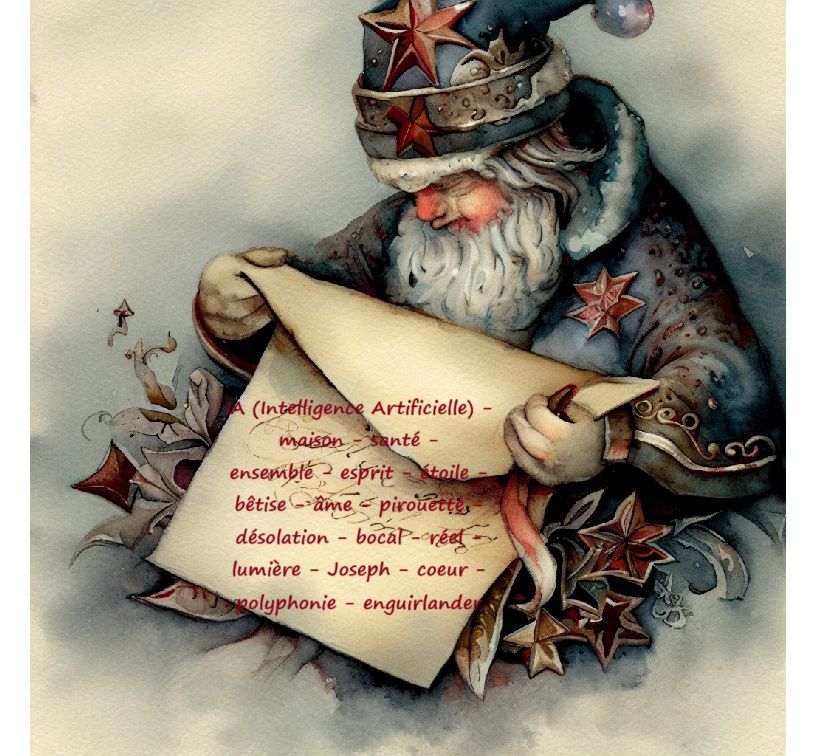 IA (Intelligence Artificielle) -
maison - santé -
ensemble - esprit - étoile -
bêtise - âme - pirouette -
désolation - bocal - réel -
lumière - Joseph - coeur -
polyphonie - enguirlander